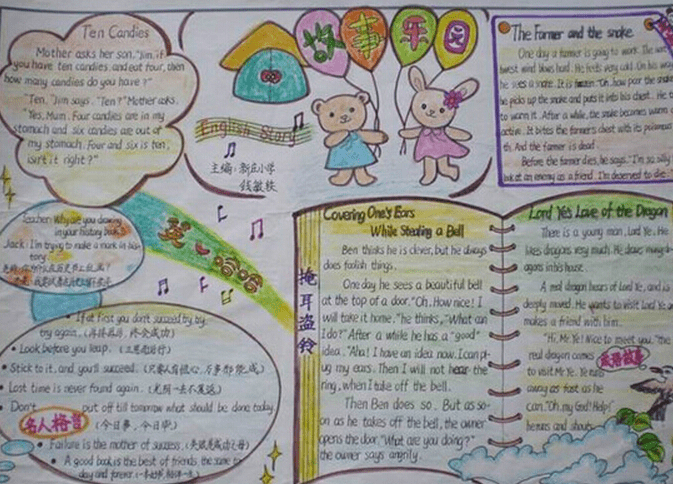 Ten Candies
Mother asks her son, "Jim, if
you have ten candies, and eat four, then
how many candies do you have?"
"Ten," Jim says. "Ten?" Mother asks.
Yes, Mum. Four candies are in my
stomach and six candies are out of
my stomach. Four and six is ten,
isn't it right?"
故事乐园
English Story
主编:新庄小学
The Farmer and the snake
One day a farmer is going to work. The
west wind blows hard. He feels very cold. On his way
he sees a snake. It is
he picks up the snake and puts it into his chest. He
to warm it. After a while, the snake becomes warm
active. It bites the farmer's chest with its poisonous
th. And the farmer is dead.
Before the farmer dies, he says, "I'm so silly
look at an enemy as a friend. I'm deserved to die.
Teacher: Why are you drawing
in your history book?
Jack: I'm trying to make a mark in his
tory.
英 哈哈
If at first you don't succeed, try, try,
try again. (再接再厉,终会成功)
Look before you leap. (三思而后行)
Stick to it, and you'll succeed. (只要人有恒心,万事都能成)
Lost time is never found again. (光阴一去不复返)
Don't put off till tomorrow what should be done today.
名人格言
(今日事,今日毕)
Failure is the mother of success. (失败是成功之母)
A good book is the best of friends, the same to
day and forever.
掩耳盗铃
Covering One's Ears
While Stealing a Bell
Ben thinks he is clever, but he always
does foolish things.
One day he sees a beautiful bell
at the top of a door. "Oh, How nice! I
will take it home." he thinks, "What can
I do?" After a while he has a "good"
idea. "Aha! I have an idea now. I can pl-
ug my ears. Then I will not hear the
ring, when I take off the bell.
Then Ben does so. But as so-
on as he takes off the bell, the owner
opens the door. "What are you doing?"
the owner says angrily.
Lord Ye's Love of the Dragon
There is a young man, Lord Ye. He
likes dragons very much. He draws many dr-
agons in his house.
A real dragon hears of Lord Ye, and is
deeply moved. He wants to visit Lord Ye and
makes a friend with him.
"Hi, Mr Ye! Nice to meet you," the
real dragon comes
成语故事
to visit Mr Ye. Ye runs
away as fast as he
can. "Oh, my God! Help!"
he runs and shouts.